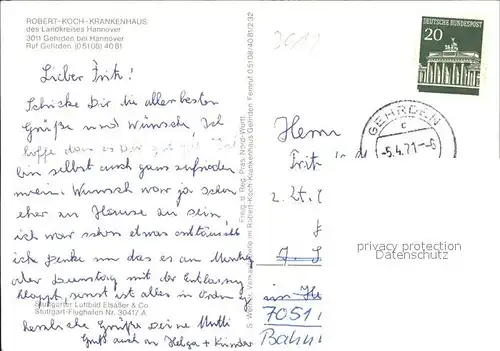 ROBERT-KOCH-KRANKENHAUS
des Landkreises Hannover
3011 Gehrden bei Hannover
Ruf Gehrden (05108) 4081
Lieber Fritz!
Schicke Dir die allerbesten
Grüße und Wünsche, Ich
hoffe das es Dir gut geht
bin selbst auch ganz zufrieden
mein Wunsch war ja schon
eher zu Hause zu sein,
ich war schon etwas enttäuscht
ich denke nun das es am Montag
oder Dienstag mit der Entlassung
klappt, sonst ist alles in Ordnung
herzliche Grüße Deine Mutti
Gruß auch an Helga + Kinder
Stuttgarter Luftbild Elsäßer & Co.
Stuttgart-Flughafen Nr. 30417 A
Freig. d. Reg. Präs. Nord-Württ.
Robert-Koch-Krankenhaus Gehrden Fernruf 05108/4081/2 32
3011
DEUTSCHE BUNDESPOST
20
GEHRDEN
c
-5.4.71-
Herrn
Fritz
z. Zt.
7051
Bahn
privacy protection
Datenschutz